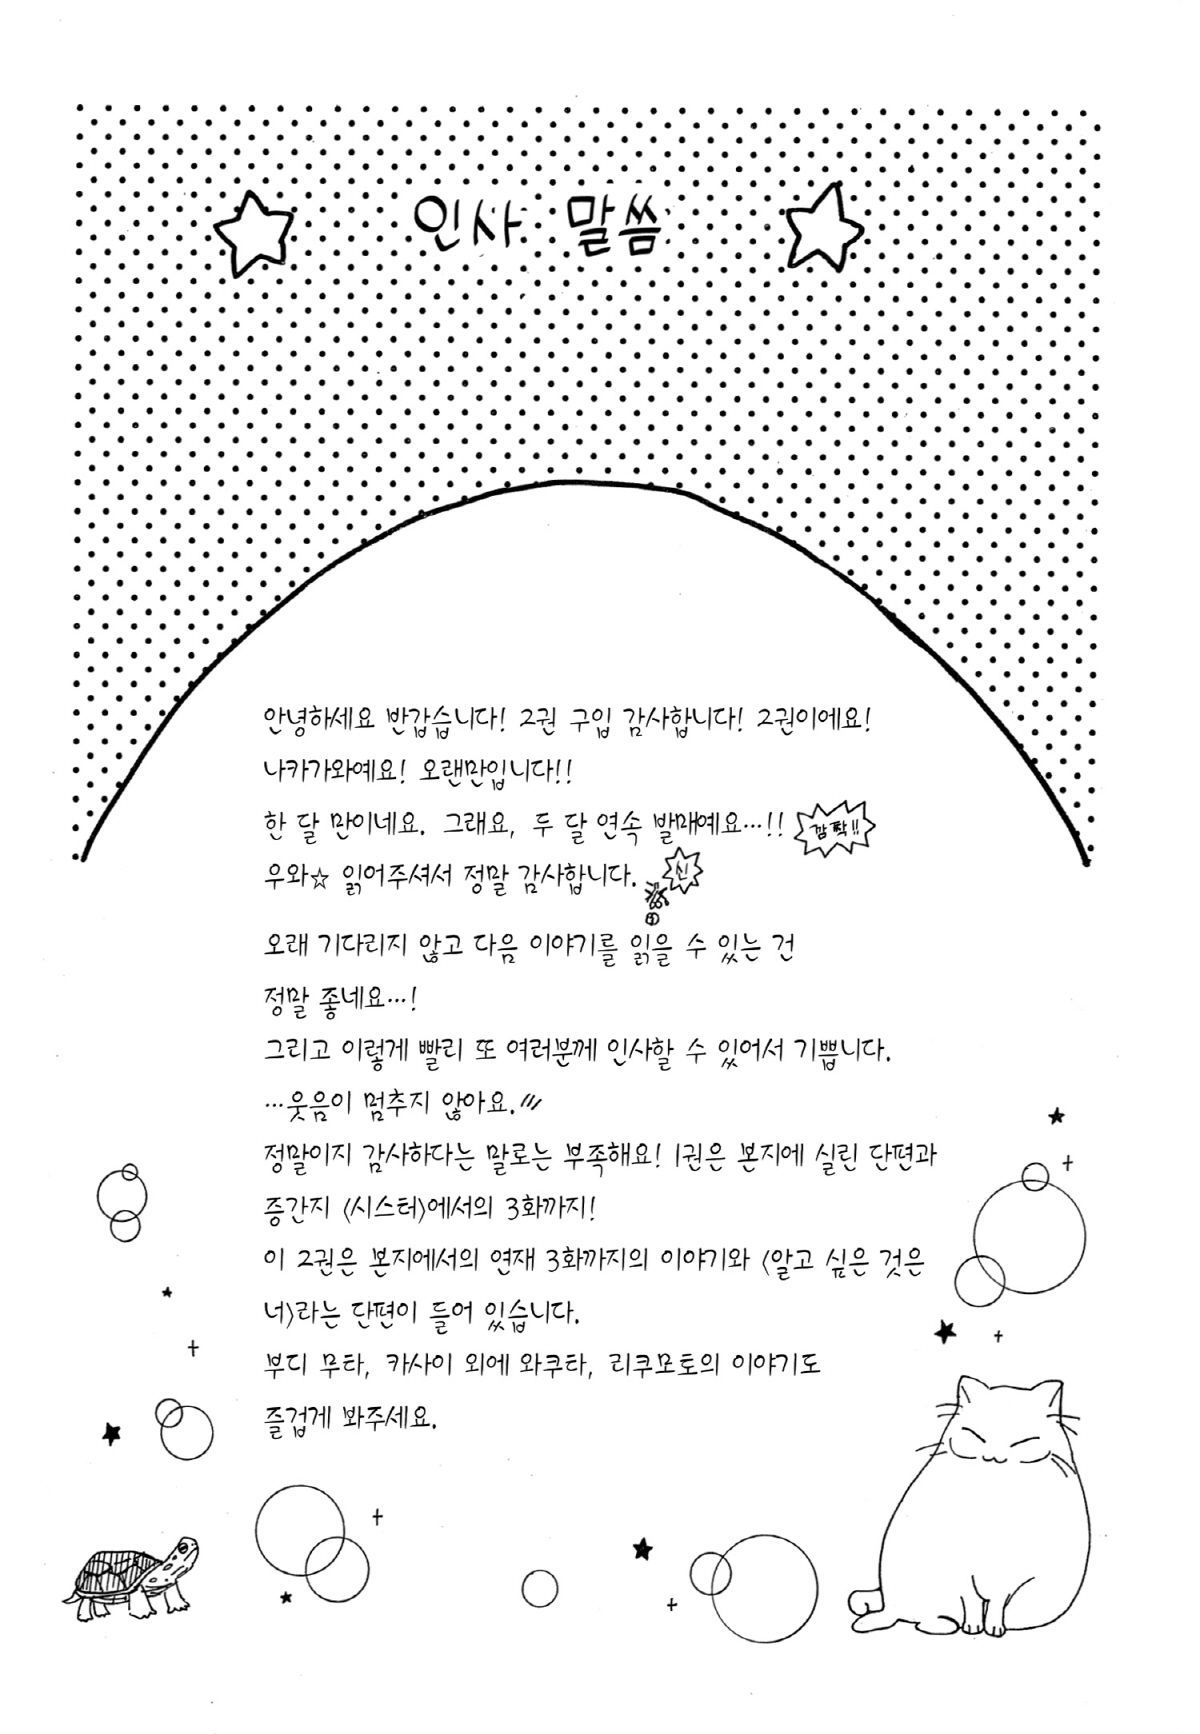 인사 말씀
안녕하세요 반갑습니다! 2권 구입 감사합니다! 2권이에요!
나카가와예요! 오랜만입니다!!
한 달 만이네요. 그래요, 두 달 연속 발매예요…!! 깜짝!!
우와☆ 읽어주셔서 정말 감사합니다. 신
오래 기다리지 않고 다음 이야기를 읽을 수 있는 건
정말 좋네요…!
그리고 이렇게 빨리 또 여러분께 인사할 수 있어서 기쁩니다.
…웃음이 멈추지 않아요.〃
정말이지 감사하다는 말로는 부족해요! 1권은 본지에 실린 단편과
증간지 〈시스터〉에서의 3화까지!
이 2권은 본지에서의 연재 3화까지의 이야기와 〈알고 싶은 것은
너〉라는 단편이 들어 있습니다.
부디 무타, 카사이 외에 와쿠타, 리쿠모토의 이야기도
즐겁게 봐주세요.